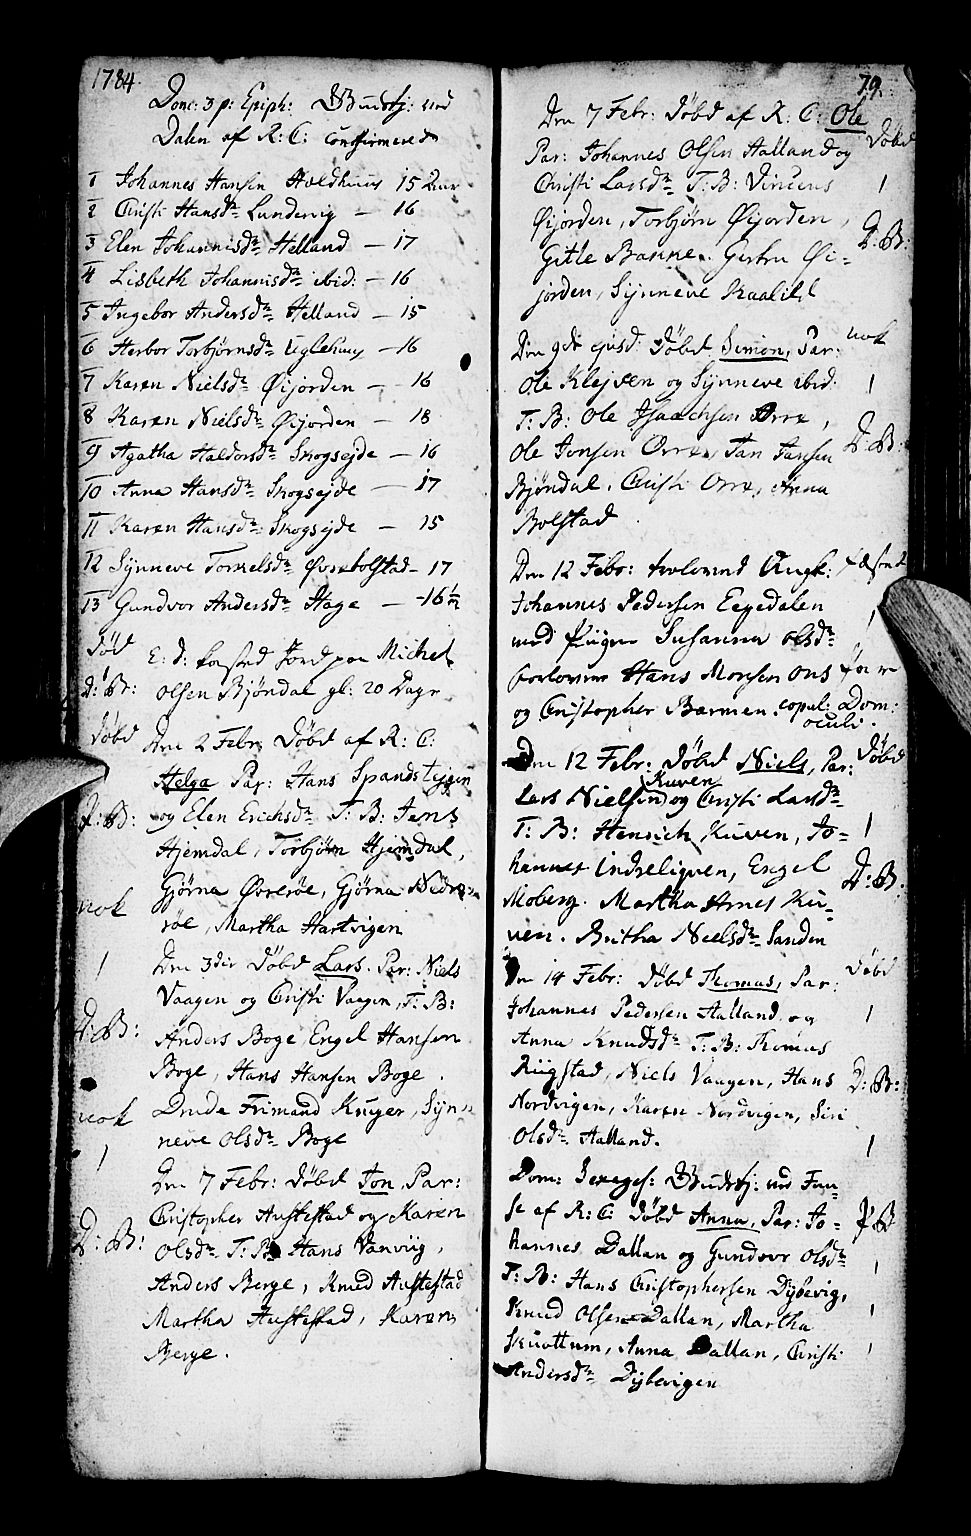 1784
Dom: 3 p: Epiph:
Dalen af R: C: confirmerede
1 Johannes Hansen Holdhuus 15 Aar
2 Christi Hansdr Lundervig — 16
3 Elen Johannisdr Helland — 17
4 Lisbeth Johannisdr ibid: — 16
5 Ingebor Andersdr Helland — 15
6 Herbor Torbjørnsdr Uglehuus — 16
7 Karen Nielsdr Øijorden — 16
8 Karen Nielsdr Øijorden — 18
9 Agatha Haldorsdr Skogsejde — 16
10 Anna Hansdr Skogsejde — 17
11 Karen Hansdr Skogsejde — 15
12 Synneve Torkelsdr Øvrebolstad — 17
13 Gundvor Andersdr Hage — 16 1/2
Død
E: d: kasted Jord paa Michel
D: B: Olsen Bjøndal gl: 20 Dage
Døbd
Den 2 Febr Døbd af R: C:
Helga Par: Hans Spandstejgen
D: B: og Elen Erichsdr T: B: Jens
Hjemdal, Torbjørn Hjemdal,
Gjørna Øvrerøe, Gjørna Nedre
nok røe, Martha Hartvigen
1 Den 3die Døbd Lars. Par: Niels
Vaagen og Christi Vaagen, T: B:
D: B: Anders Boge Engel Hansen
Boge, Hans Hansen Boge.
nok Drude Frimand Kuyer, Syn-
1 neve Olsdr Boge
Den 7 Febr: Døbd Jon, Par:
Christopher Austestad og Karen
D: B: Olsdr T: B: Hans Vanviig,
Anders Berge, Knud Austestad
Martha Austestad, Karen
Berge.
79.
Den 7 Febr: Døbd af R: C: Ole
Døbd
Par: Johannes Olsen Halland og
Christi Larsdr T: B: Vincens 1
Øijorden, Torbjørn Øijorden,
D: B:
Gitle Banne. Gertru Øi-
jorden, Synneve Kaalild
nok
Den 9de ejusd: Døbd Simon, Par:
Ole Klejven og Synneve ibid: 1
T: B: Ole Isaachsen Orre,
D: B:
Ole Jonsen Orre, Jan Jansen
Bjøndal. Christi Orre, Anna
Bolstad
Den 12 Febr: trolovend Ungk:
Johannes Pedersen Eegedalen
1
med Pigen Susanna Olsdr
Forlovere Hans Monsen Ous
og Christopher Barmen. copul: Dom:
oculi.
Den 12 Febr: Døbd Niels, Par: Døbd
Kuven
Lars Nielsen og Christi Larsdr
T: B: Henrich Kuven, Jo- 1
hannes Indreligven, Engel
D: B:
Moberg. Martha Arnes Ku-
ven. Britha Nielsdr Sanden
Den 14 Febr: Døbd Thomas, Par: Døbd
Johannes Pedersen Halland og 1
Anna Knudsdr T: B: Thomas
Rügstad, Niels Vaagen, Hans D: B:
Nordvigen, Karen Nordvigen, Siri
Olsdr Halland. 1
Dom: Sexages: ved Fu-
se af R: C: Døbd Anna, Par: Jo-
hannes Dallan og Gundvor Olsdr
1
T: B: Hans Christophersen Dybevig,
1
Knud Olsen Dallan, Martha
Skuottum, Anna Dallan, Christi 1
Andersdr Dybevigen